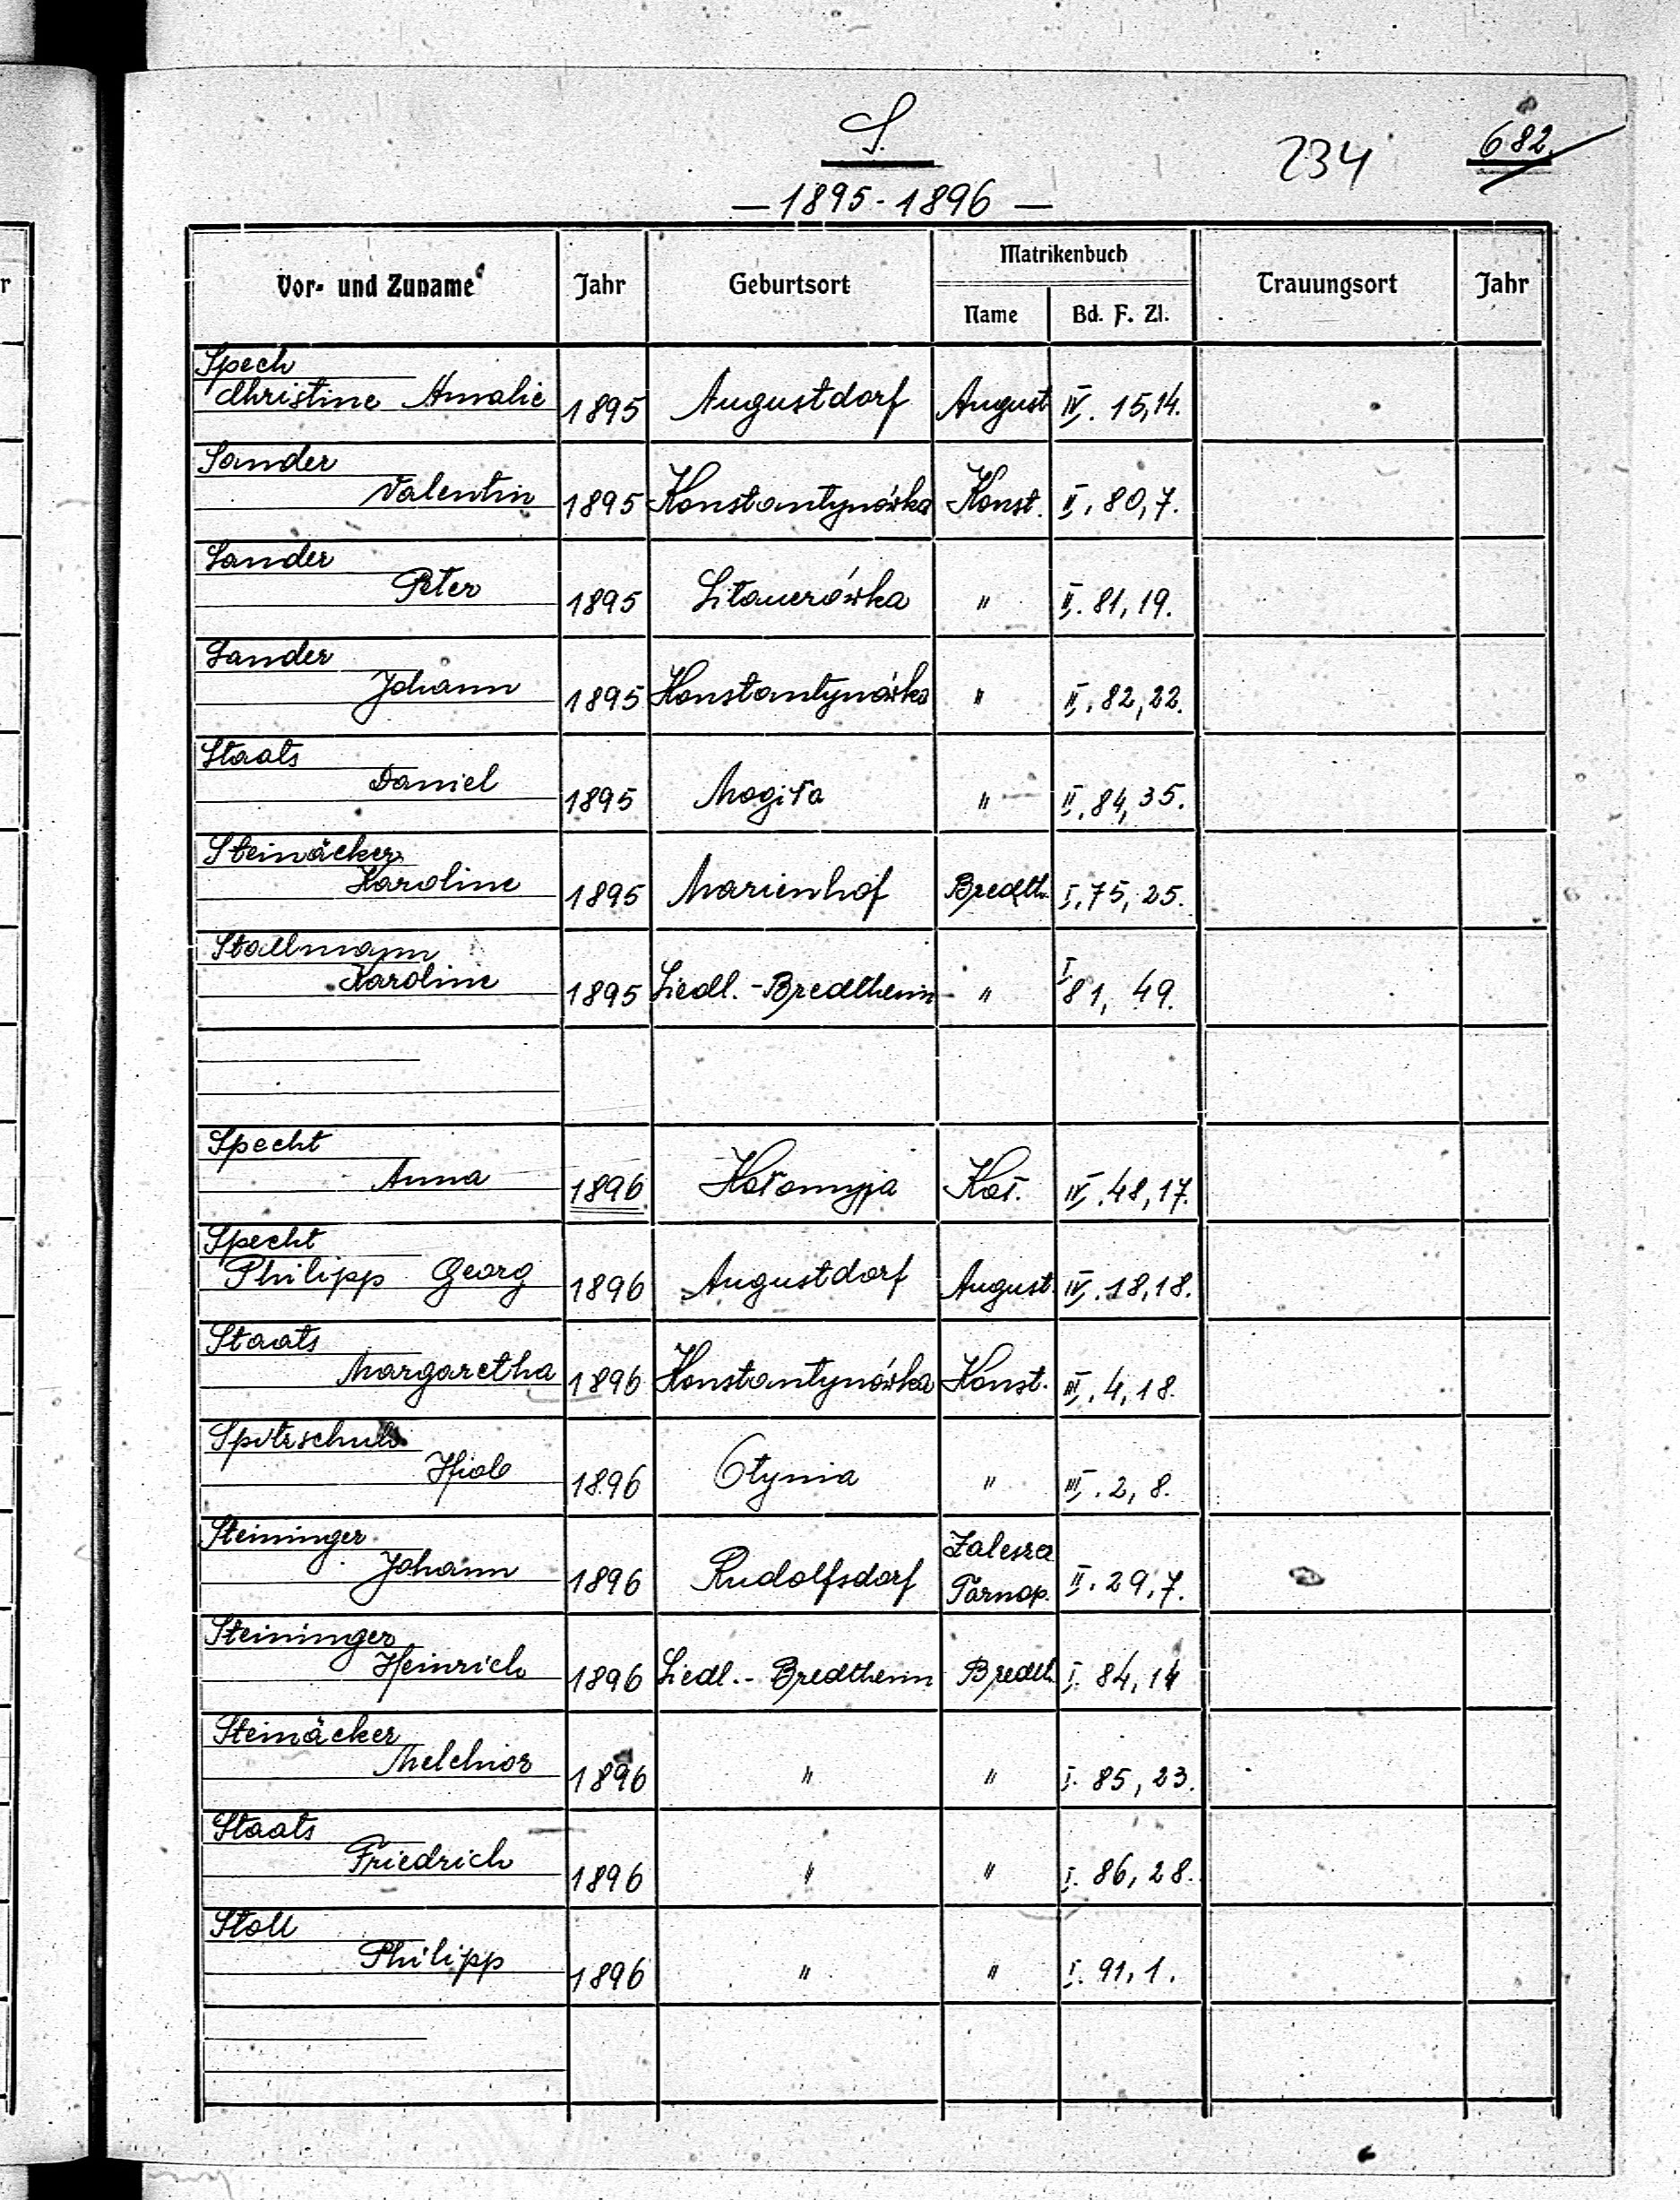 S.
234
682.
— 1895-1896 —
Vor- und Zuname Jahr Geburtsort Matrikenbuch Trauungsort Jahr
Name Bd. F. Zl.
Spech
Christine Amalie 1895 Augustdorf August IV. 15,14.
Sander
Valentin 1895 Konstantynówka Konst. II. 80,7.
Sander
Peter 1895 Sitauerówka " II. 81,19.
Sander
Johann 1895 Konstantynówka " II. 82,22.
Staats
Daniel 1895 Mogiła " II. 84,35.
Steinäcker
Karoline 1895 Marienhof Bredth. I. 75, 25.
Stallmann
Karoline 1895 Siedl.-Bredtheim " I. 81, 49.
Specht
Anna 1896 Kołomyja Koł. IV. 48,17.
Specht
Philipp Georg 1896 Augustdorf August. IV. 18,18.
Staats
Margaretha 1896 Konstantynówka Konst. III. 4,18.
Hiob 1896 Otynia " III. 2, 8.
Steininger
Johann 1896 Rudolfsdorf Zalesz. Tarnop. II. 29,7.
Steininger
Heinrich 1896 Siedl.-Bredtheim Bredth. I. 84,14
Steinäcker
Melchior 1896 " " I. 85,23.
Staats
Friedrich 1896 " " I. 86,28.
Stoll
Philipp 1896 " " I. 91,1.